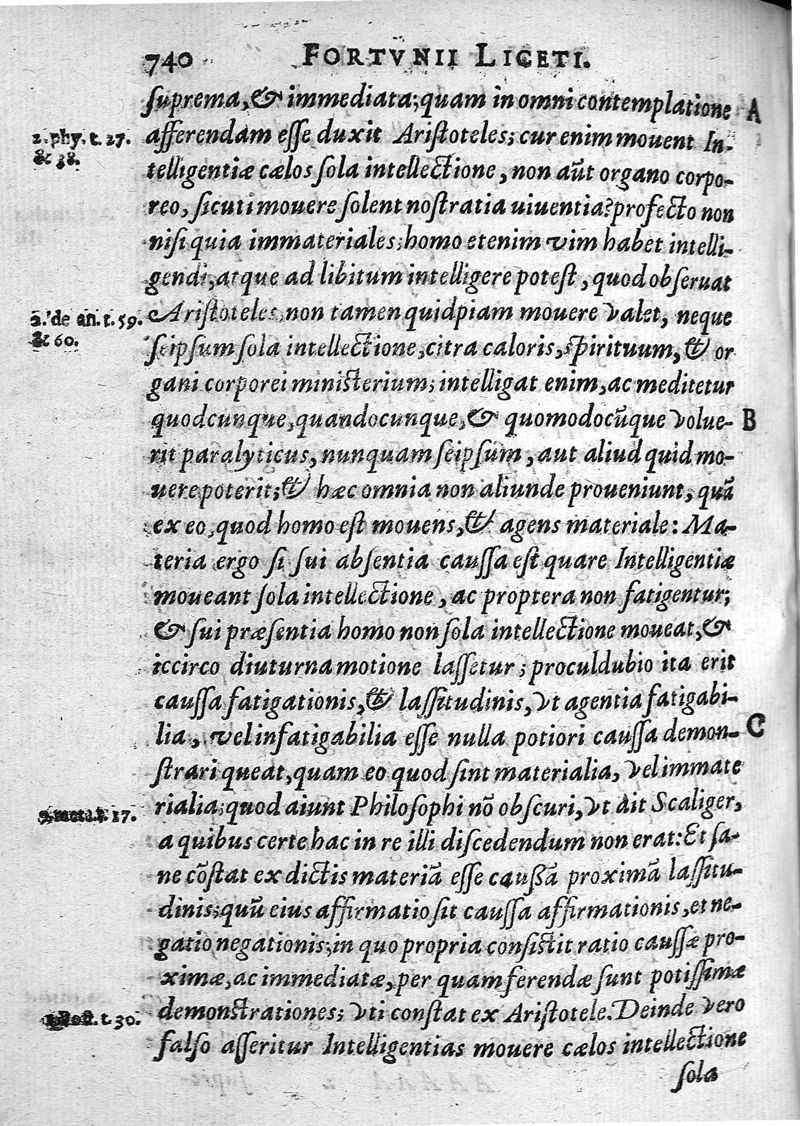 740 FORTVNII LICETI.
suprema, & immediata; quam in omni contemplatione A
2. phy. t. 27. afferendam esse duxit Aristoteles; cur enim mouent In-
& 38. telligentiæ cælos sola intellectione, non aũt organo corpo-
reo, sicuti mouere solent nostratia uiuentia? profecto non
nisi quia immateriales; homo etenim vim habet intelli-
gendi, atque ad libitum intelligere potest, quod obseruat
2. de an. t. 59. Aristoteles, non tamen quidpiam mouere valet, neque
& 60. seipsum sola intellectione, citra caloris, spirituum, & or
gani corporei ministerium; intelligat enim, ac meditetur
quodcunque, quandocunque, & quomodocũque volue- B
rit paralyticus, nunquam seipsum, aut aliud quid mo-
uere poterit; & hæc omnia non aliunde proueniunt, quã
ex eo, quod homo est mouens, & agens materiale: Ma-
teria ergo si sui absentia caussa est quare Intelligentiæ
moueant sola intellectione, ac propterea non fatigentur;
& sui præsentia homo non sola intellectione moueat, &
iccirco diuturna motione lassetur; proculdubio ita erit
caussa fatigationis, & lassitudinis, vt agentia fatigabi-
lia, vel infatigabilia esse nulla potiori caussa demon- C
strari queat, quam eo quod sint materialia, vel immate
9. meta. t. 17. rialia; quod aiunt Philosophi nõ obscuri, vt ait Scaliger,
a quibus certe hac in re illi discedendum non erat: Et sa-
ne cõstat ex dictis materiã esse caussã proximã lassitu-
dinis; quũ eius affirmatio sit caussa affirmationis, et ne-
gatio negationis; in quo propria consistit ratio caussæ pro-
ximæ, ac immediatæ, per quam ferendæ sunt potissimæ
t. 30. demonstrationes; vti constat ex Aristotele. Deinde vero
falso asseritur Intelligentias mouere cælos intellectione
sola